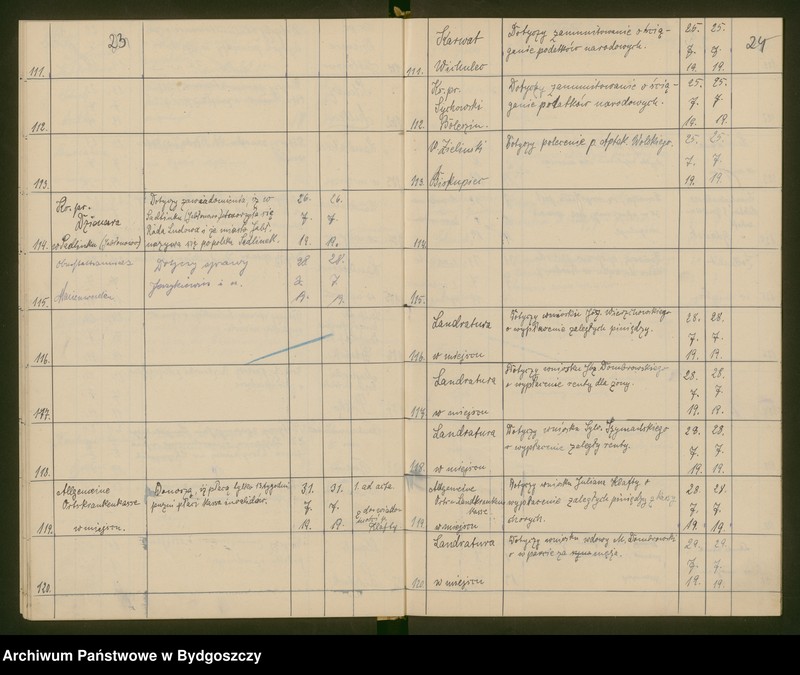 23
111.
112.
113.
Kr. pr.
114. w Sedlinku (Jabłonowo)
Dotyczy zawiadomienia, iż w
Sedlinku (Jabłonowo) utworzyła się
Rada Ludowa i że miasto Jabł.
nazywa się po polsku Sedlinek.
26. 26.
7. 7.
19. 19.
115.
Dotyczy sprawy
i n.
28. 28.
7. 7.
19. 19.
116.
117.
118.
Allgemeine
Ortskrankenkasse
119. w miejscu.
Donoszą, iż płacą tylko tygodni
płaci Kasa inwalidów.
31. 31.
7. 7.
19. 19.
1. ad acta
2. do wiadomości p.
Klafty
120.
24
Karwat
111. Wichulec
Dotyczy zamunitowanie o ścią-
ganie podatków narodowych.
25. 25.
7. 7.
19. 19.
Kr. pr.
Sychowski
112. Bóleszin.
Dotyczy zamunitowanie o ścią-
ganie podatków narodowych.
25. 25.
7. 7.
19. 19.
P. Zieliński
113. Biskupiec
Dotyczy polecenie p. Aptek. Wolskiego.
25. 25.
7. 7.
19. 19.
114.
115.
Landratura
116. w miejscu
Dotyczy wniosku Józ. Wierzchowskiego
o wypłacenie zaległych piniędzy.
28. 28.
7. 7.
19. 19.
Landratura
117. w miejscu
Dotyczy wniosku Józ. Dombrowskiego
o wypłacenie renty dla żony.
28. 28.
7. 7.
19. 19.
Landratura
118 w miejscu
Dotyczy wniosku Sylw. Szymańskiego
o wypłacenie zaległy renty.
28. 28.
7. 7.
19. 19.
Allgemeine
Orts- u. Landkranken
kasse
119 w miejscu
Dotyczy wnioska Juliana Klafty o
wypłacenie zaległych piniędzy z kasy
chorych.
28 28.
7. 7.
19. 19.
Landratura
120 w miejscu
Dotyczy wniosku wdowy M. Dombrowski
o wsparcie za męża.
29. 29.
7. 7.
19. 19.
Archiwum Państwowe w Bydgoszczy